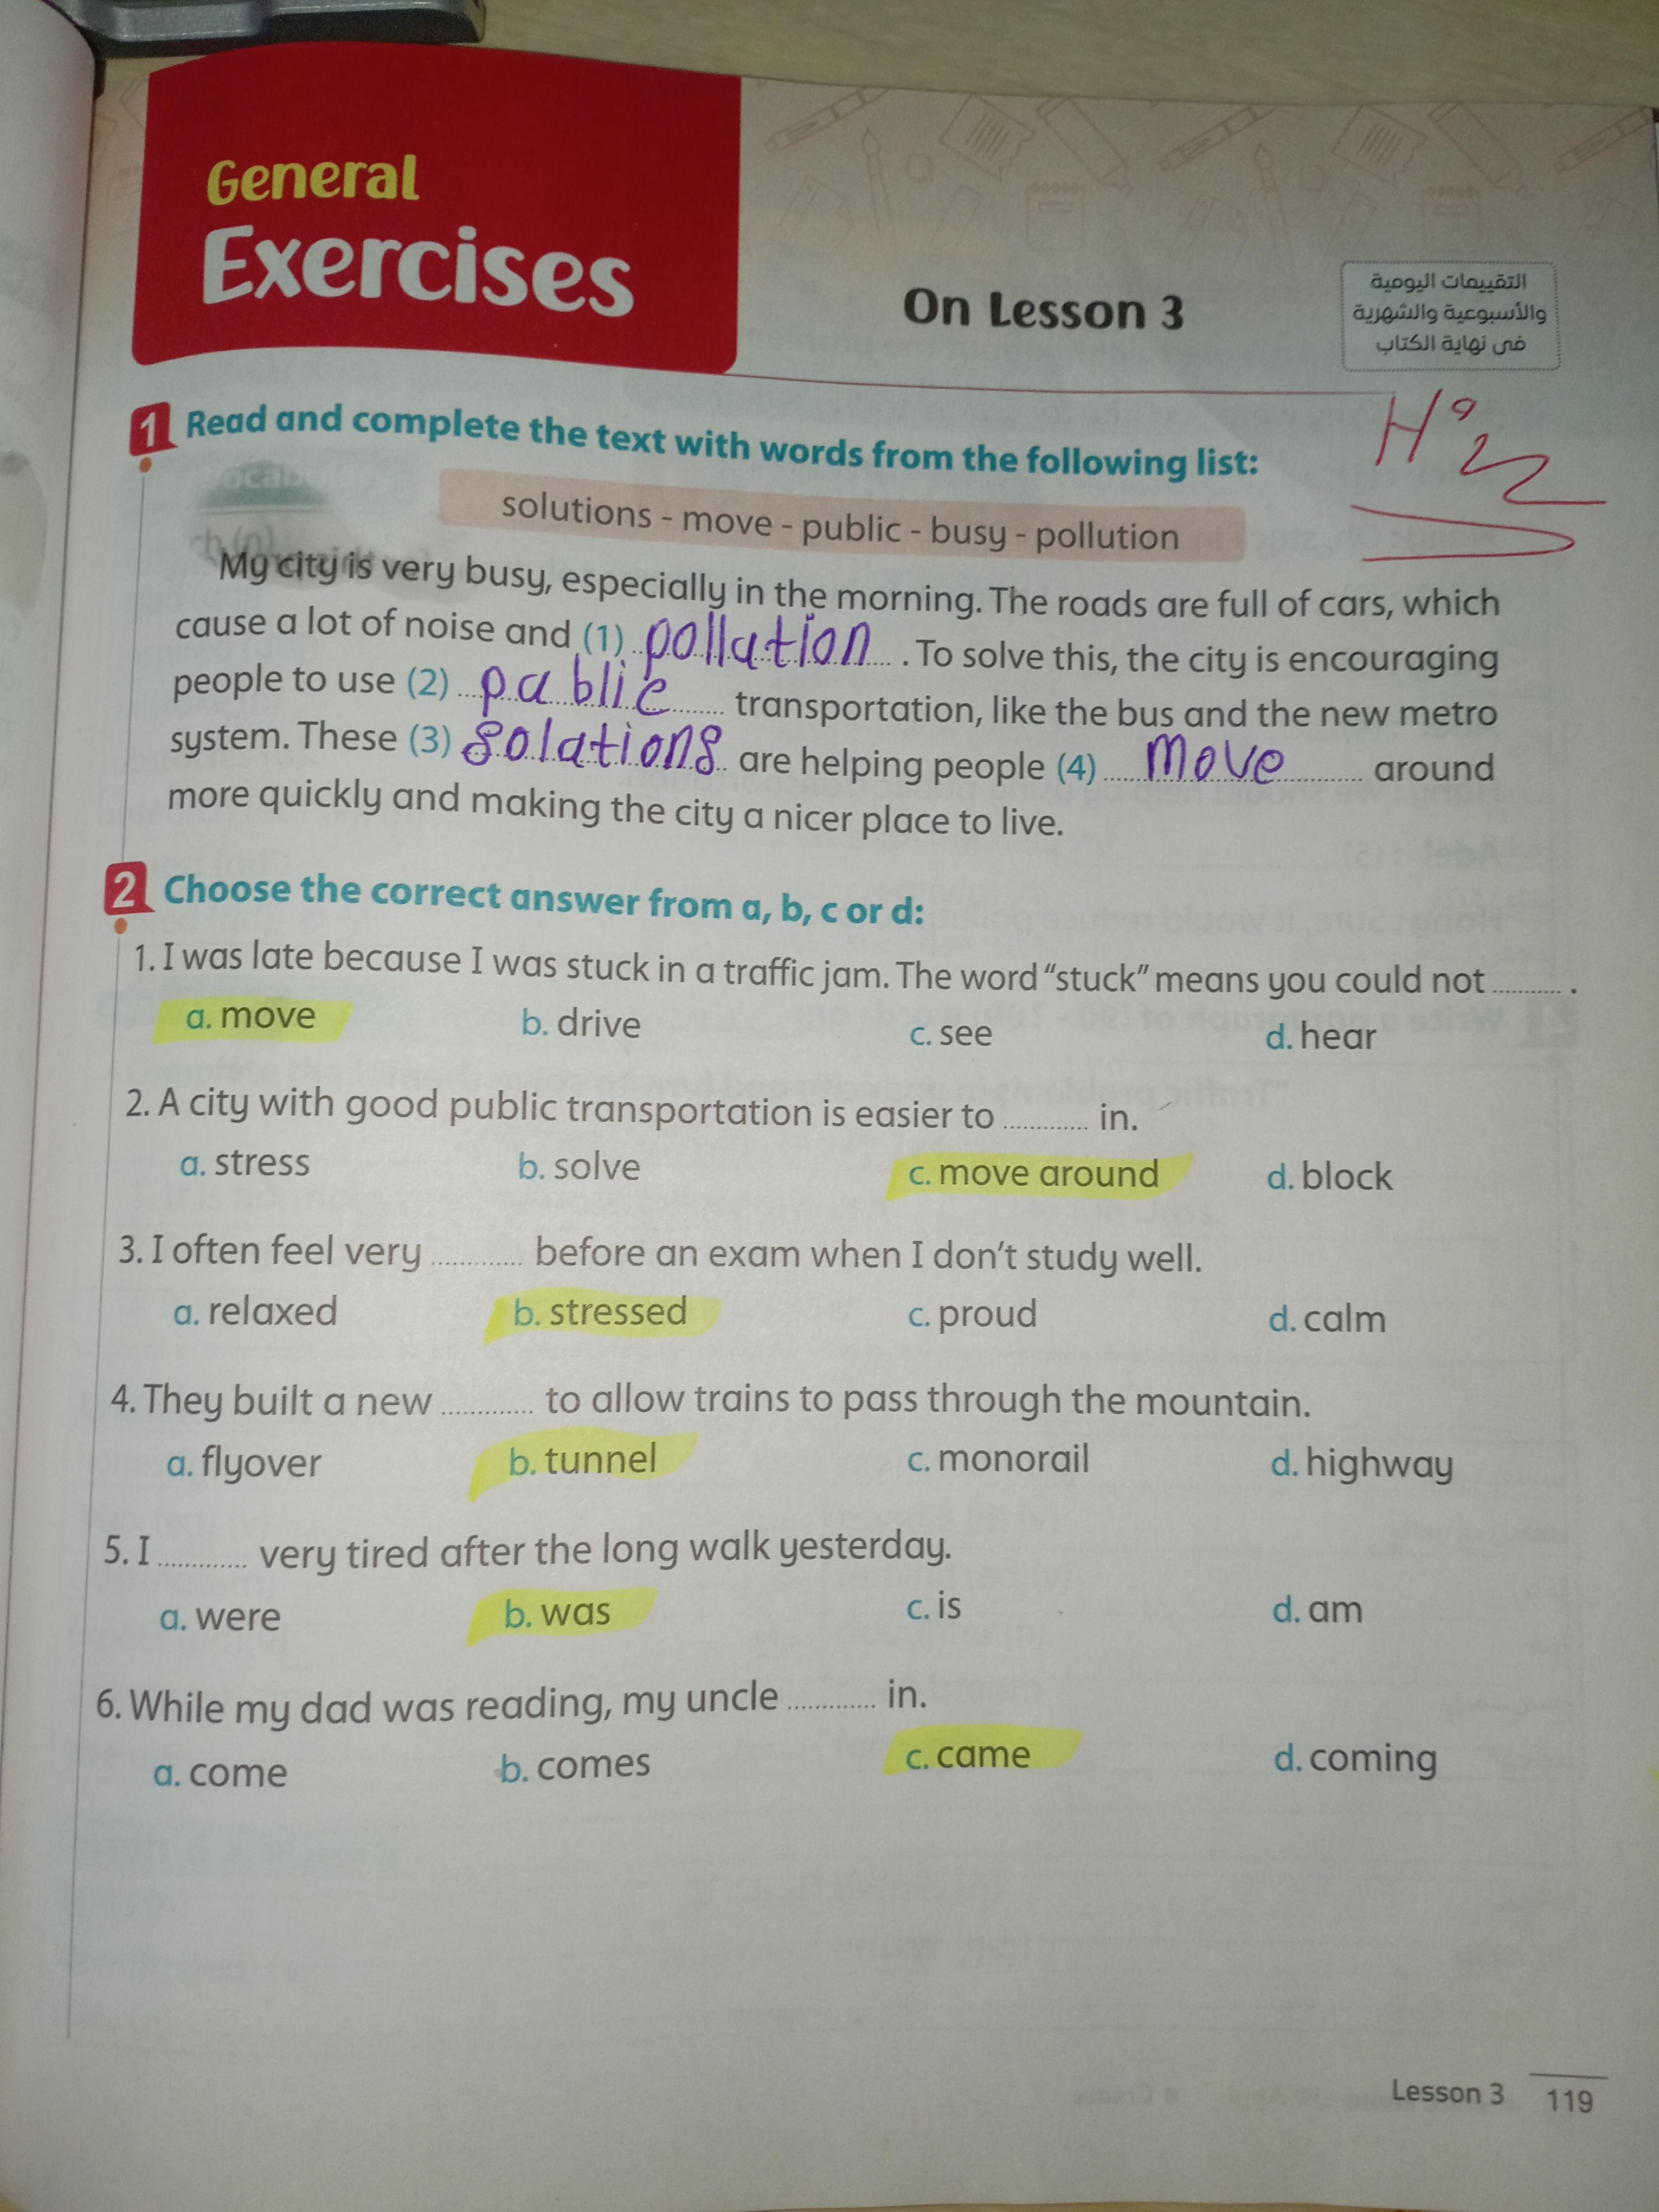 General
Exercises
On Lesson 3
التقييمات اليومية
والأسبوعية والشهرية
فى نهاية الكتاب
1 Read and complete the text with words from the following list:
solutions - move - public - busy - pollution
My city is very busy, especially in the morning. The roads are full of cars, which
cause a lot of noise and (1) pollation . To solve this, the city is encouraging
people to use (2) pablic transportation, like the bus and the new metro
system. These (3) solations are helping people (4) move around
more quickly and making the city a nicer place to live.
2 Choose the correct answer from a, b, c or d:
1. I was late because I was stuck in a traffic jam. The word "stuck" means you could not .......... .
a. move b. drive c. see d. hear
2. A city with good public transportation is easier to ............ in.
a. stress b. solve c. move around d. block
3. I often feel very ............ before an exam when I don't study well.
a. relaxed b. stressed c. proud d. calm
4. They built a new ............ to allow trains to pass through the mountain.
a. flyover b. tunnel c. monorail d. highway
5. I ............ very tired after the long walk yesterday.
a. were b. was c. is d. am
6. While my dad was reading, my uncle ............ in.
a. come b. comes c. came d. coming
Lesson 3 119